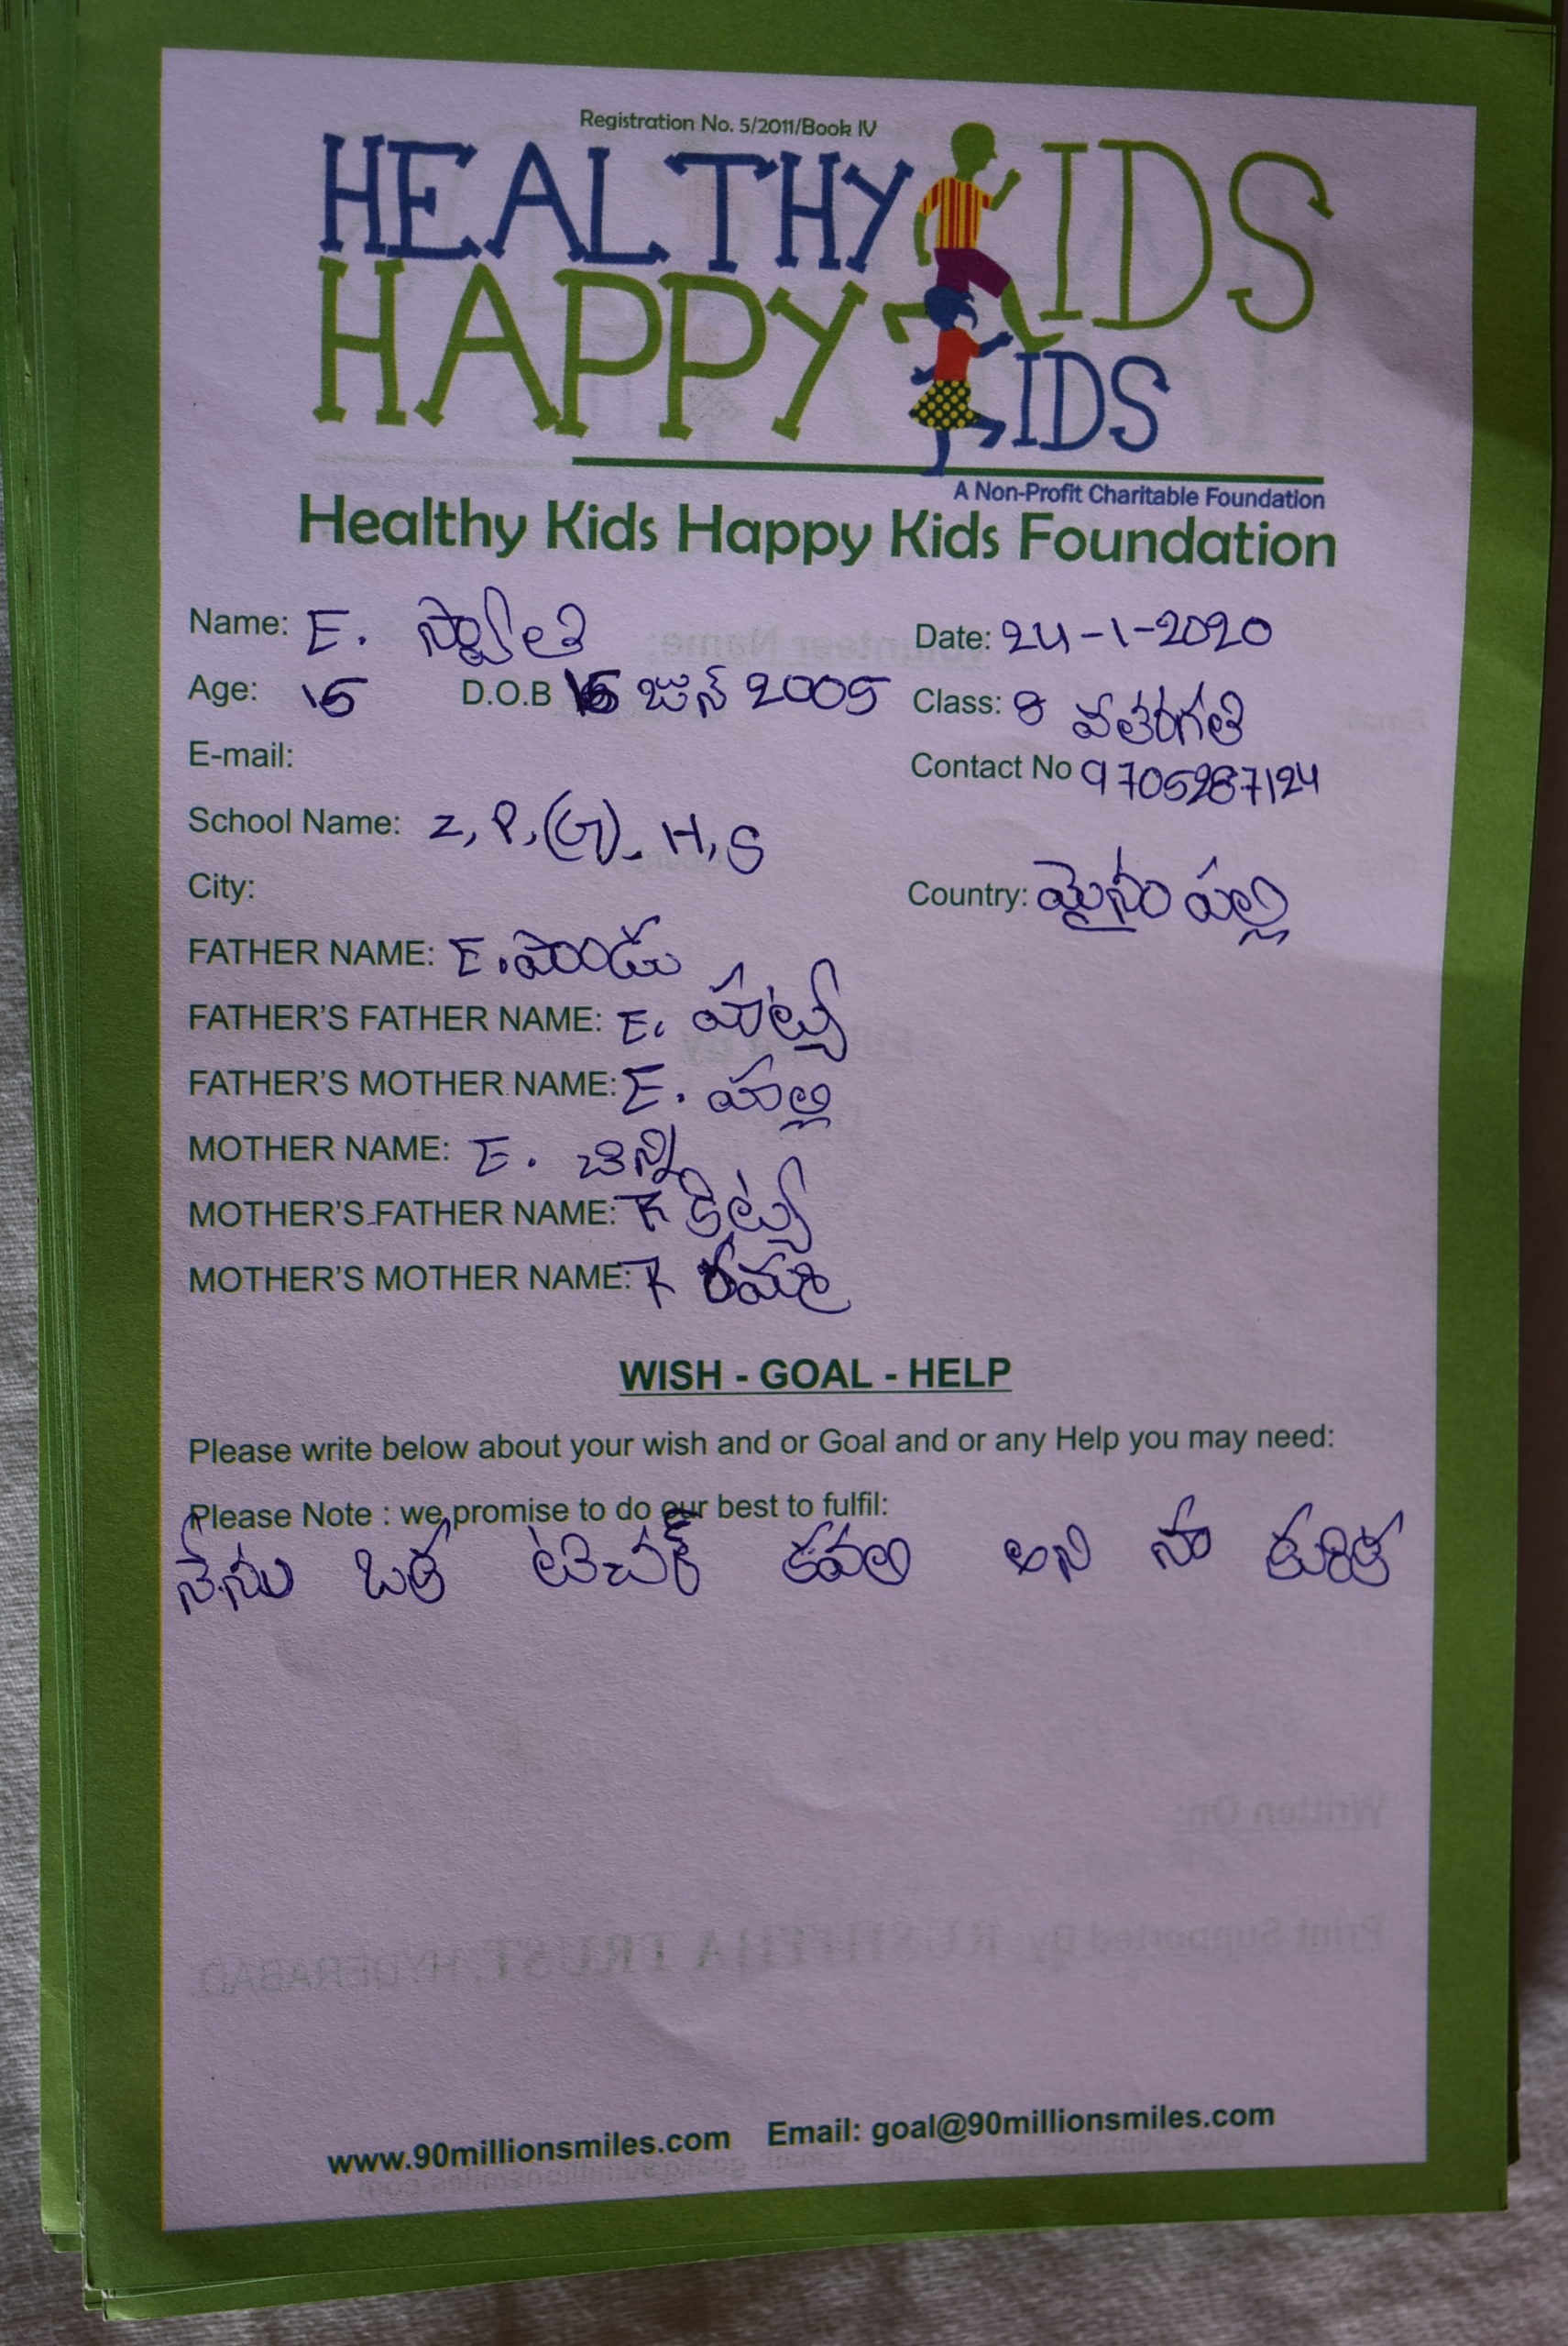 Registration No. 5/2011/Book IV
HEALTHY KIDS
HAPPY KIDS
A Non-Profit Charitable Foundation
Healthy Kids Happy Kids Foundation
Name: E. Date: 24-1-2020
Age: 15 D.O.B 15 జున్ 2005 Class: 8 వతరగతి
E-mail: Contact No 9705287124
School Name: Z, P, (G). H, S
City: Country: మైనంపల్లి
FATHER NAME: E. పాండు
FATHER'S FATHER NAME: E.
FATHER'S MOTHER NAME: E.
MOTHER NAME: E. చిన్ని
MOTHER'S FATHER NAME: K
MOTHER'S MOTHER NAME: K
WISH - GOAL - HELP
Please write below about your wish and or Goal and or any Help you may need:
Please Note : we promise to do our best to fulfil:
నేను ఒక టిచర్ కవలి అని నా కురిక
Written On:
Print Supported By: RUSHITHA TRUST, HYDERABAD.
www.90millionsmiles.com Email: goal@90millionsmiles.com